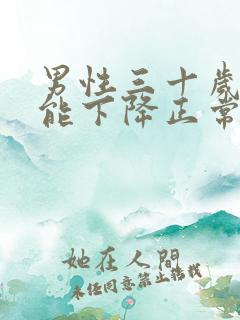 男性三十歲
能下降正常
她在人間
未任同意禁止搭載